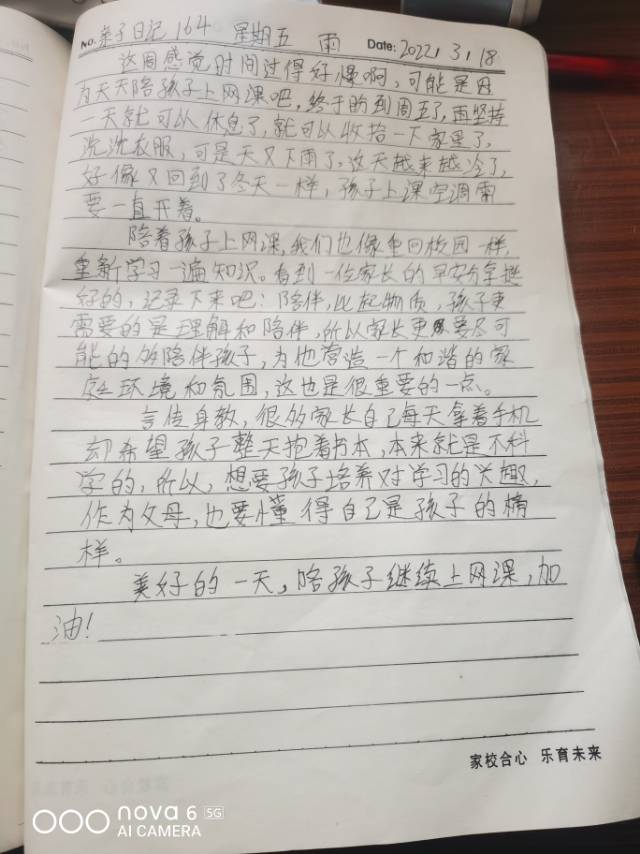 No. 亲子日记 164 星期五 雨 Date: 2022.3.18
这周感觉时间过得好慢啊,可能是因
为天天陪孩子上网课吧,终于盼到周五了,再坚持
一天就可以休息了,就可以收拾一下家里了,
洗洗衣服,可是天又下雨了,这天越来越冷了,
好像又回到了冬天一样,孩子上课空调需
要一直开着。
陪着孩子上网课,我们也像重回校园一样,
重新学习一遍知识。看到一位家长的早安分享挺
好的,记录下来吧:陪伴,比起物质,孩子更
需要的是理解和陪伴,所以家长更要尽可
能的多陪伴孩子,为他营造一个和谐的家
庭环境和氛围,这也是很重要的一点。
言传身教,很多家长自己每天拿着手机
却希望孩子整天抱着书本,本来就是不科
学的,所以,想要孩子培养对学习的兴趣,
作为父母,也要懂得自己是孩子的榜
样。
美好的一天,陪孩子继续上网课,加
油!
家校合心 乐育未来
nova 6 5G
AI CAMERA